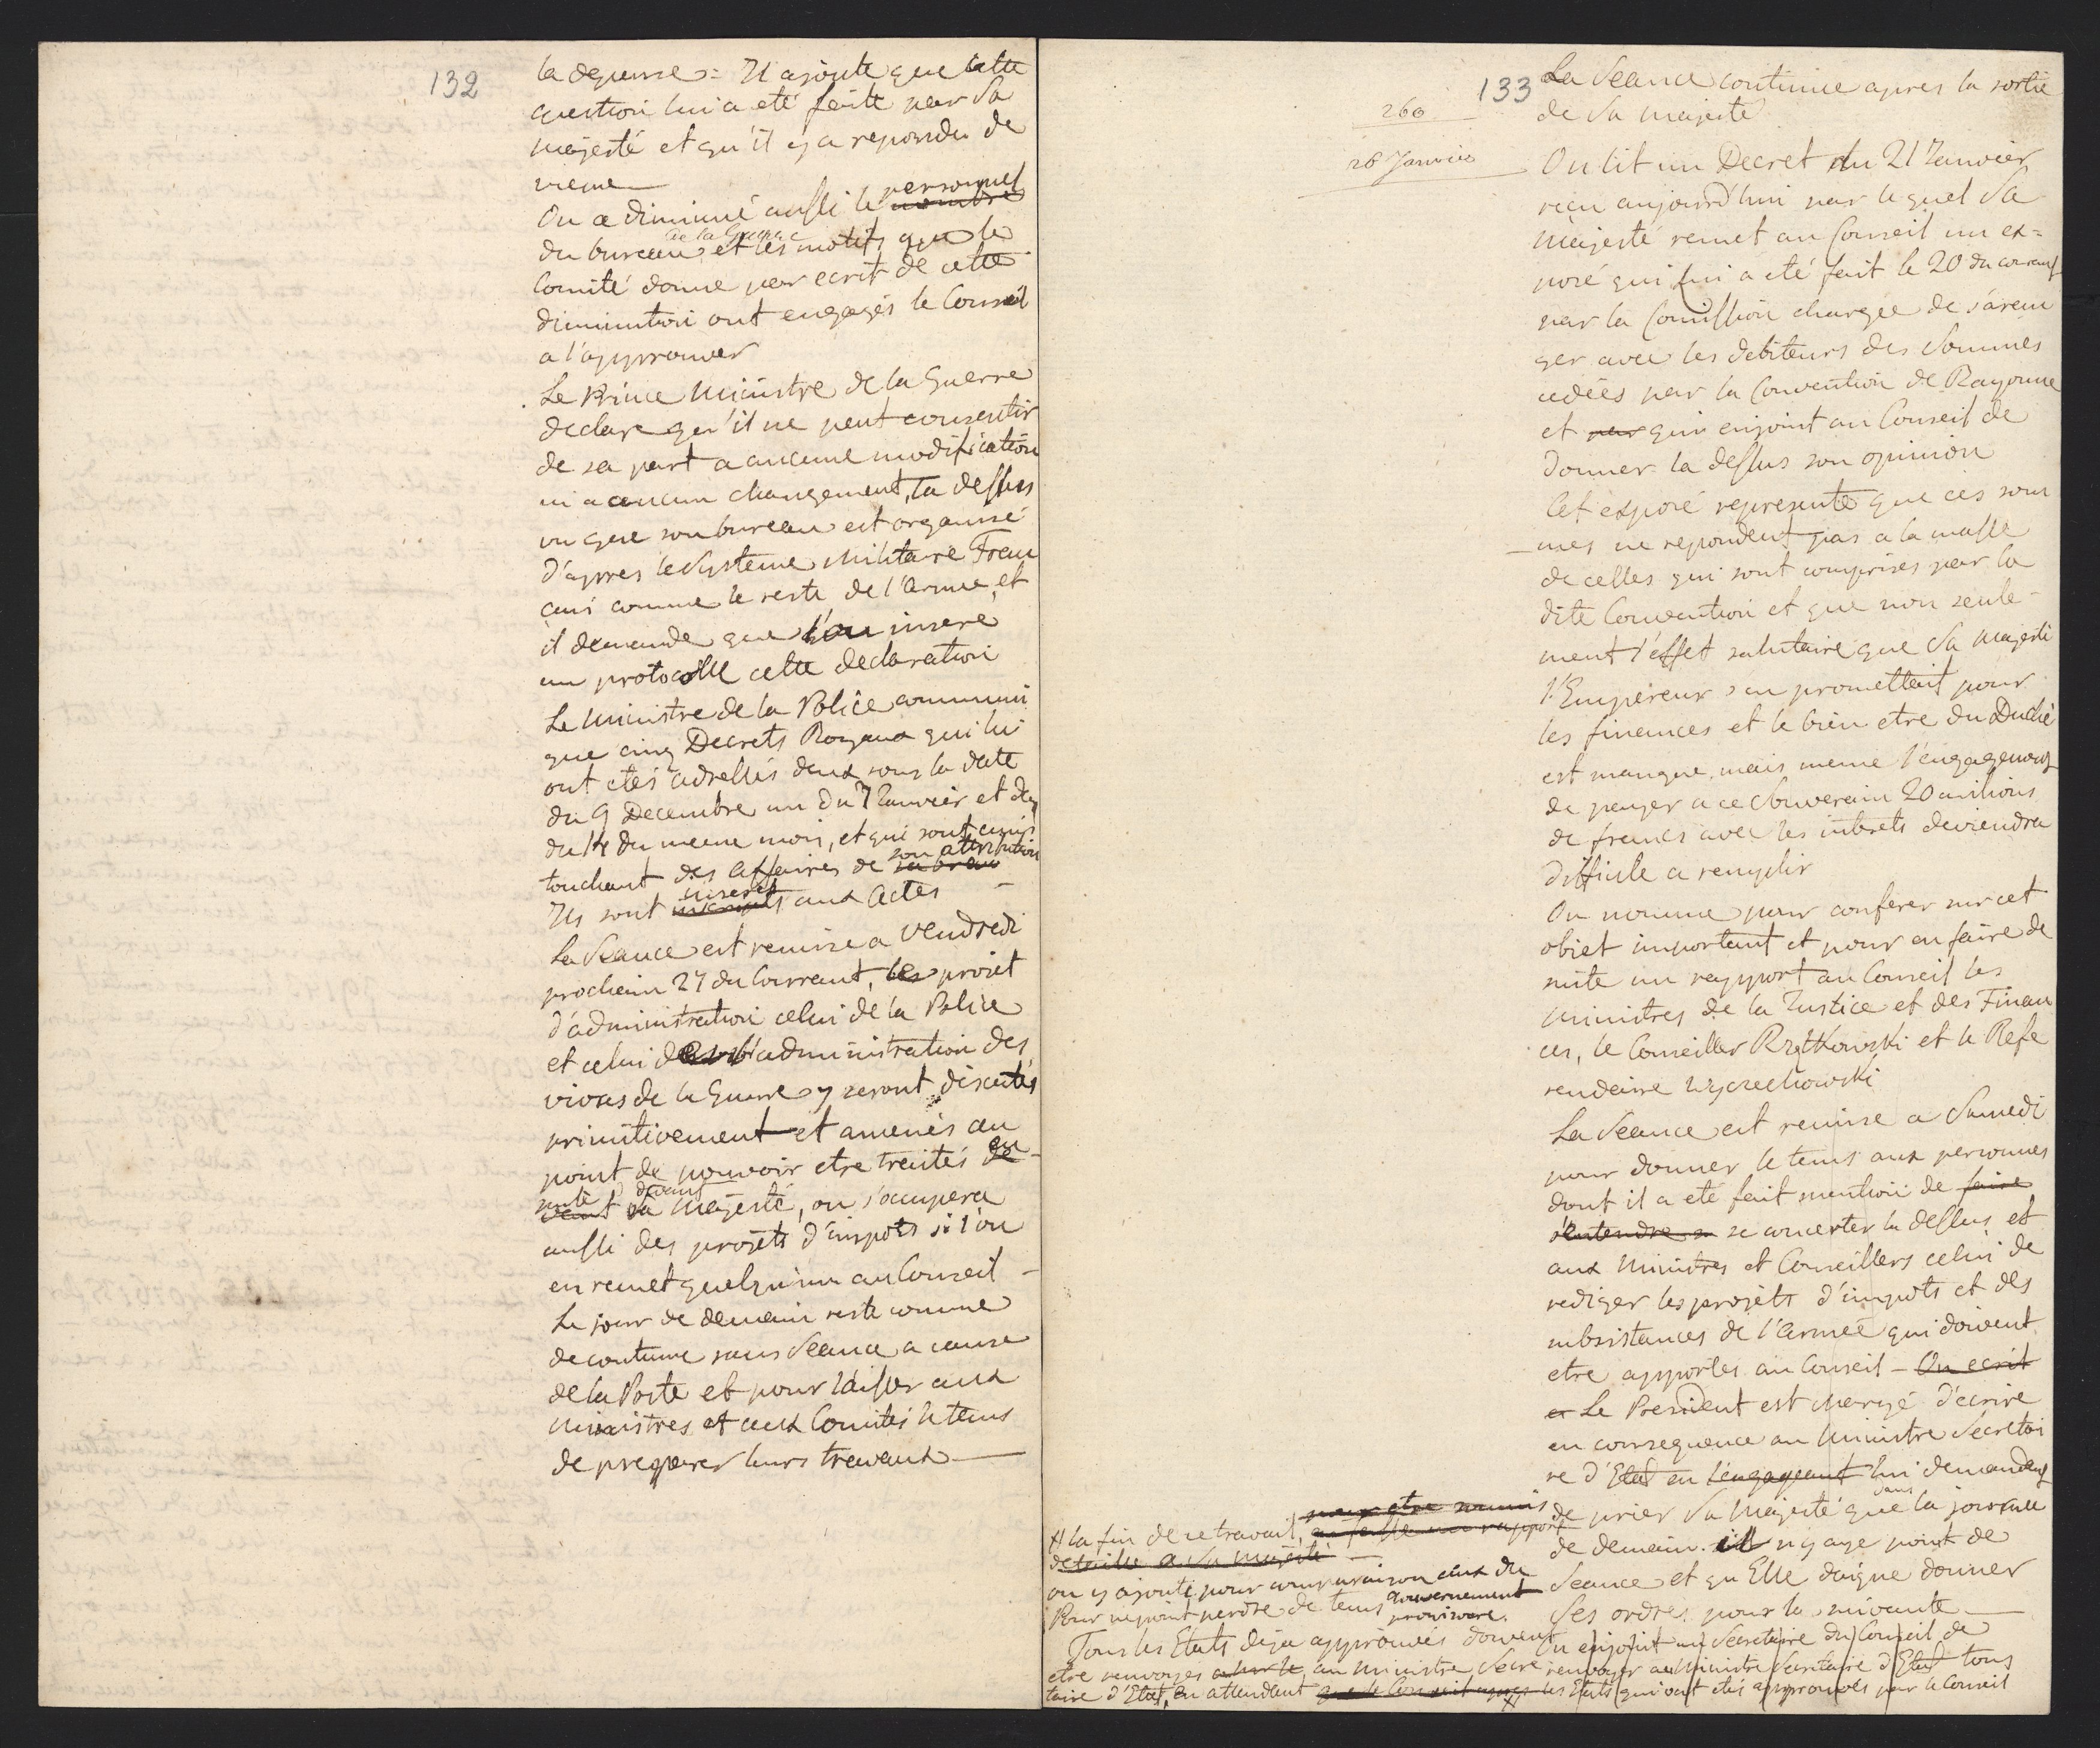 132
la depense = Il ajoute que cette
question lui a eté faite par Sa
majesté et qu'il y a repondu de
meme
On a diminué aussi le nombre personnel
du bureau de la Guerre et les motifs que le
Comité donne par ecrit de cette
diminution ont engagés le Conseil
a l'approuver
Le Prince Ministre de la Guerre
declare qu'il ne peut consentir
de sa part a aucune modification
ni a aucun changement la dessus
vu que son bureau est organisé
d'apres le Systeme Militaire Fran
çais comme le reste de l'Armée, et
il demande que l'on insere
au protocolle cette declaration
Le Ministre de la Police communi
que cinq Decrets Royaux qui lui
ont etés adressés deux sous la date
du 9 Decembre un du 7 Janvier et deux
du 14 du meme mois, et qui sont emis
touchant des affaires de son attribution
Ils sont inscripts inserés aux Actes
La Seance est remise a Vendredi
prochain 27 du Courrant, les projet
d'administration celui de la Police
et celui de l'administration des
vivres de la Guerre y seront discutés
primitivement et amenés au
point de pouvoir etre traités de en
suite devant Sa Majesté, on s'occupera
aussi des projets d'impots si l'on
en remet quelqu'un au Conseil
Le jour de demain reste comme
de coutume sans Seance a cause
de la Poste et pour laisser aux
Ministres et aux Comités le tems
de preparer leurs travaux
133
260
26 Janvier
La Seance continue apres la sortie
de Sa Majesté
On lit un Decret du 21 Janvier
reçu aujourd'hui par lequel Sa
Majesté remet au Conseil un ex=
posé qui lui a eté fait le 20 du courant
par la Comission chargée de s'aran
ger avec les debiteurs des Sommes
cedées par la Convention de Bayonne
et par qui enjoint au Conseil de
donner la dessus son opinion
Cet exposé represente que ces som
mes ne repondent pas a la masse
de celles qui sont comprises par la
dite Convention et que non seule-
ment l'effet salutaire que Sa Majesté
l'Empereur s'en promettait pour
les finances et le bien etre du Duché
est manque, mais meme l'engagement
de payer a ce Souverain 20 milions
de francs avec les interets deviendra
difficile a remplir
On nomme pour conferer sur cet
objet important et pour en faire de
suite un rapport au Conseil les
Ministres de la Justice et des Finan
ces, le Conseiller Rzętkowski et le Refe
rendaire Wyczechowski
La Seance est remise a Samedi
pour donner le tems aux personnes
dont il a eté fait mention de faire
s'entendre se concerter la dessus et
aux Ministres et Conseillers celui de
rediger les projets d'impots et des
subsistances de l'Armée qui doivent
etre apportés au Conseil - On ecrit
Le President est chargé d'ecrire
en consequence au Ministre Secretai
re d'Etat en l'engageant lui demandant
de prier Sa Majesté que dans la journée
de demain il n'y aye point de
Seance et qu'Elle daigne donner
Ses ordres pour la suivante
On enjoint au Secretaire du Conseil de
renvoyer au Ministre Secretaire d'Etat tous
les Etats qui ont etés approuvés par le Conseil
la fin de ce travail, pour etre soumis
rapport
detaillé a Sa Majesté
on y ajoute pour comparaison ceux du
Gouvernement provisoire.
Pour ne point perdre de tems
Tous les Etats deja approuvés doivent
etre renvoyes au Ministre Secre
taire d'Etat, en attendant que le Conseil